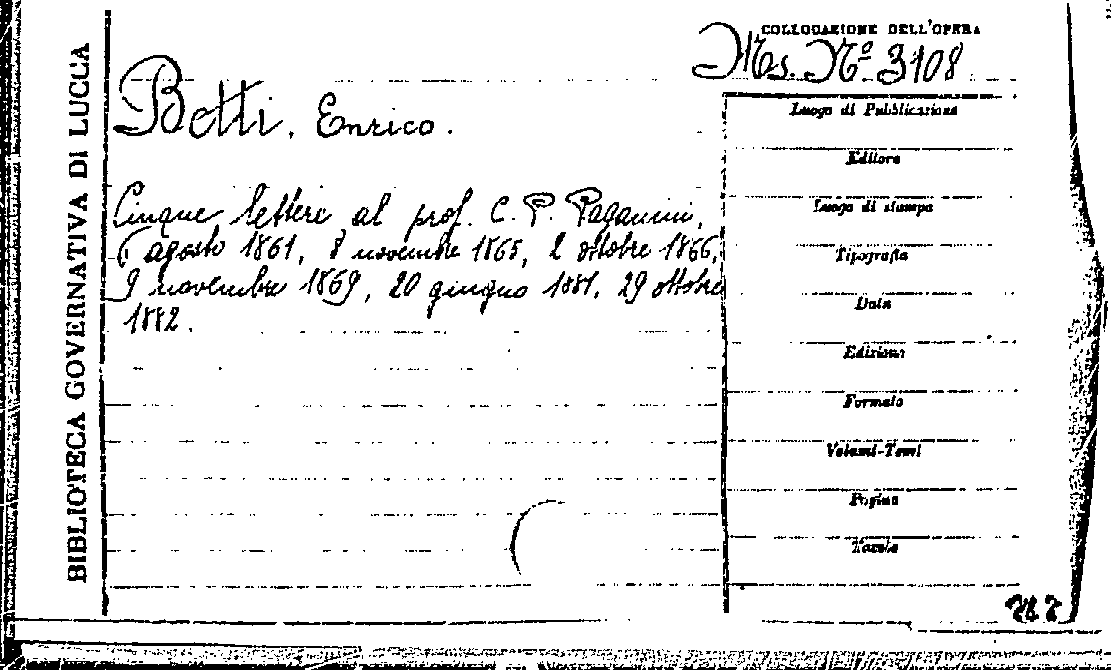 BIBLIOTECA GOVERNATIVA DI LUCCA
COLLOCAZIONE DELL'OPERA
Ms. Nº 3108
Betti, Enrico.
Cinque lettere al prof. C. P. Paganini,
6 agosto 1861, 8 novembre 1865, 2 ottobre 1866,
9 novembre 1869, 20 giugno 1881, 29 ottobre
1882.
Luogo di Pubblicazione
Editore
Luogo di stampa
Tipografia
Data
Edizione
Formato
Volumi-Tomi
Pagine
Tavole